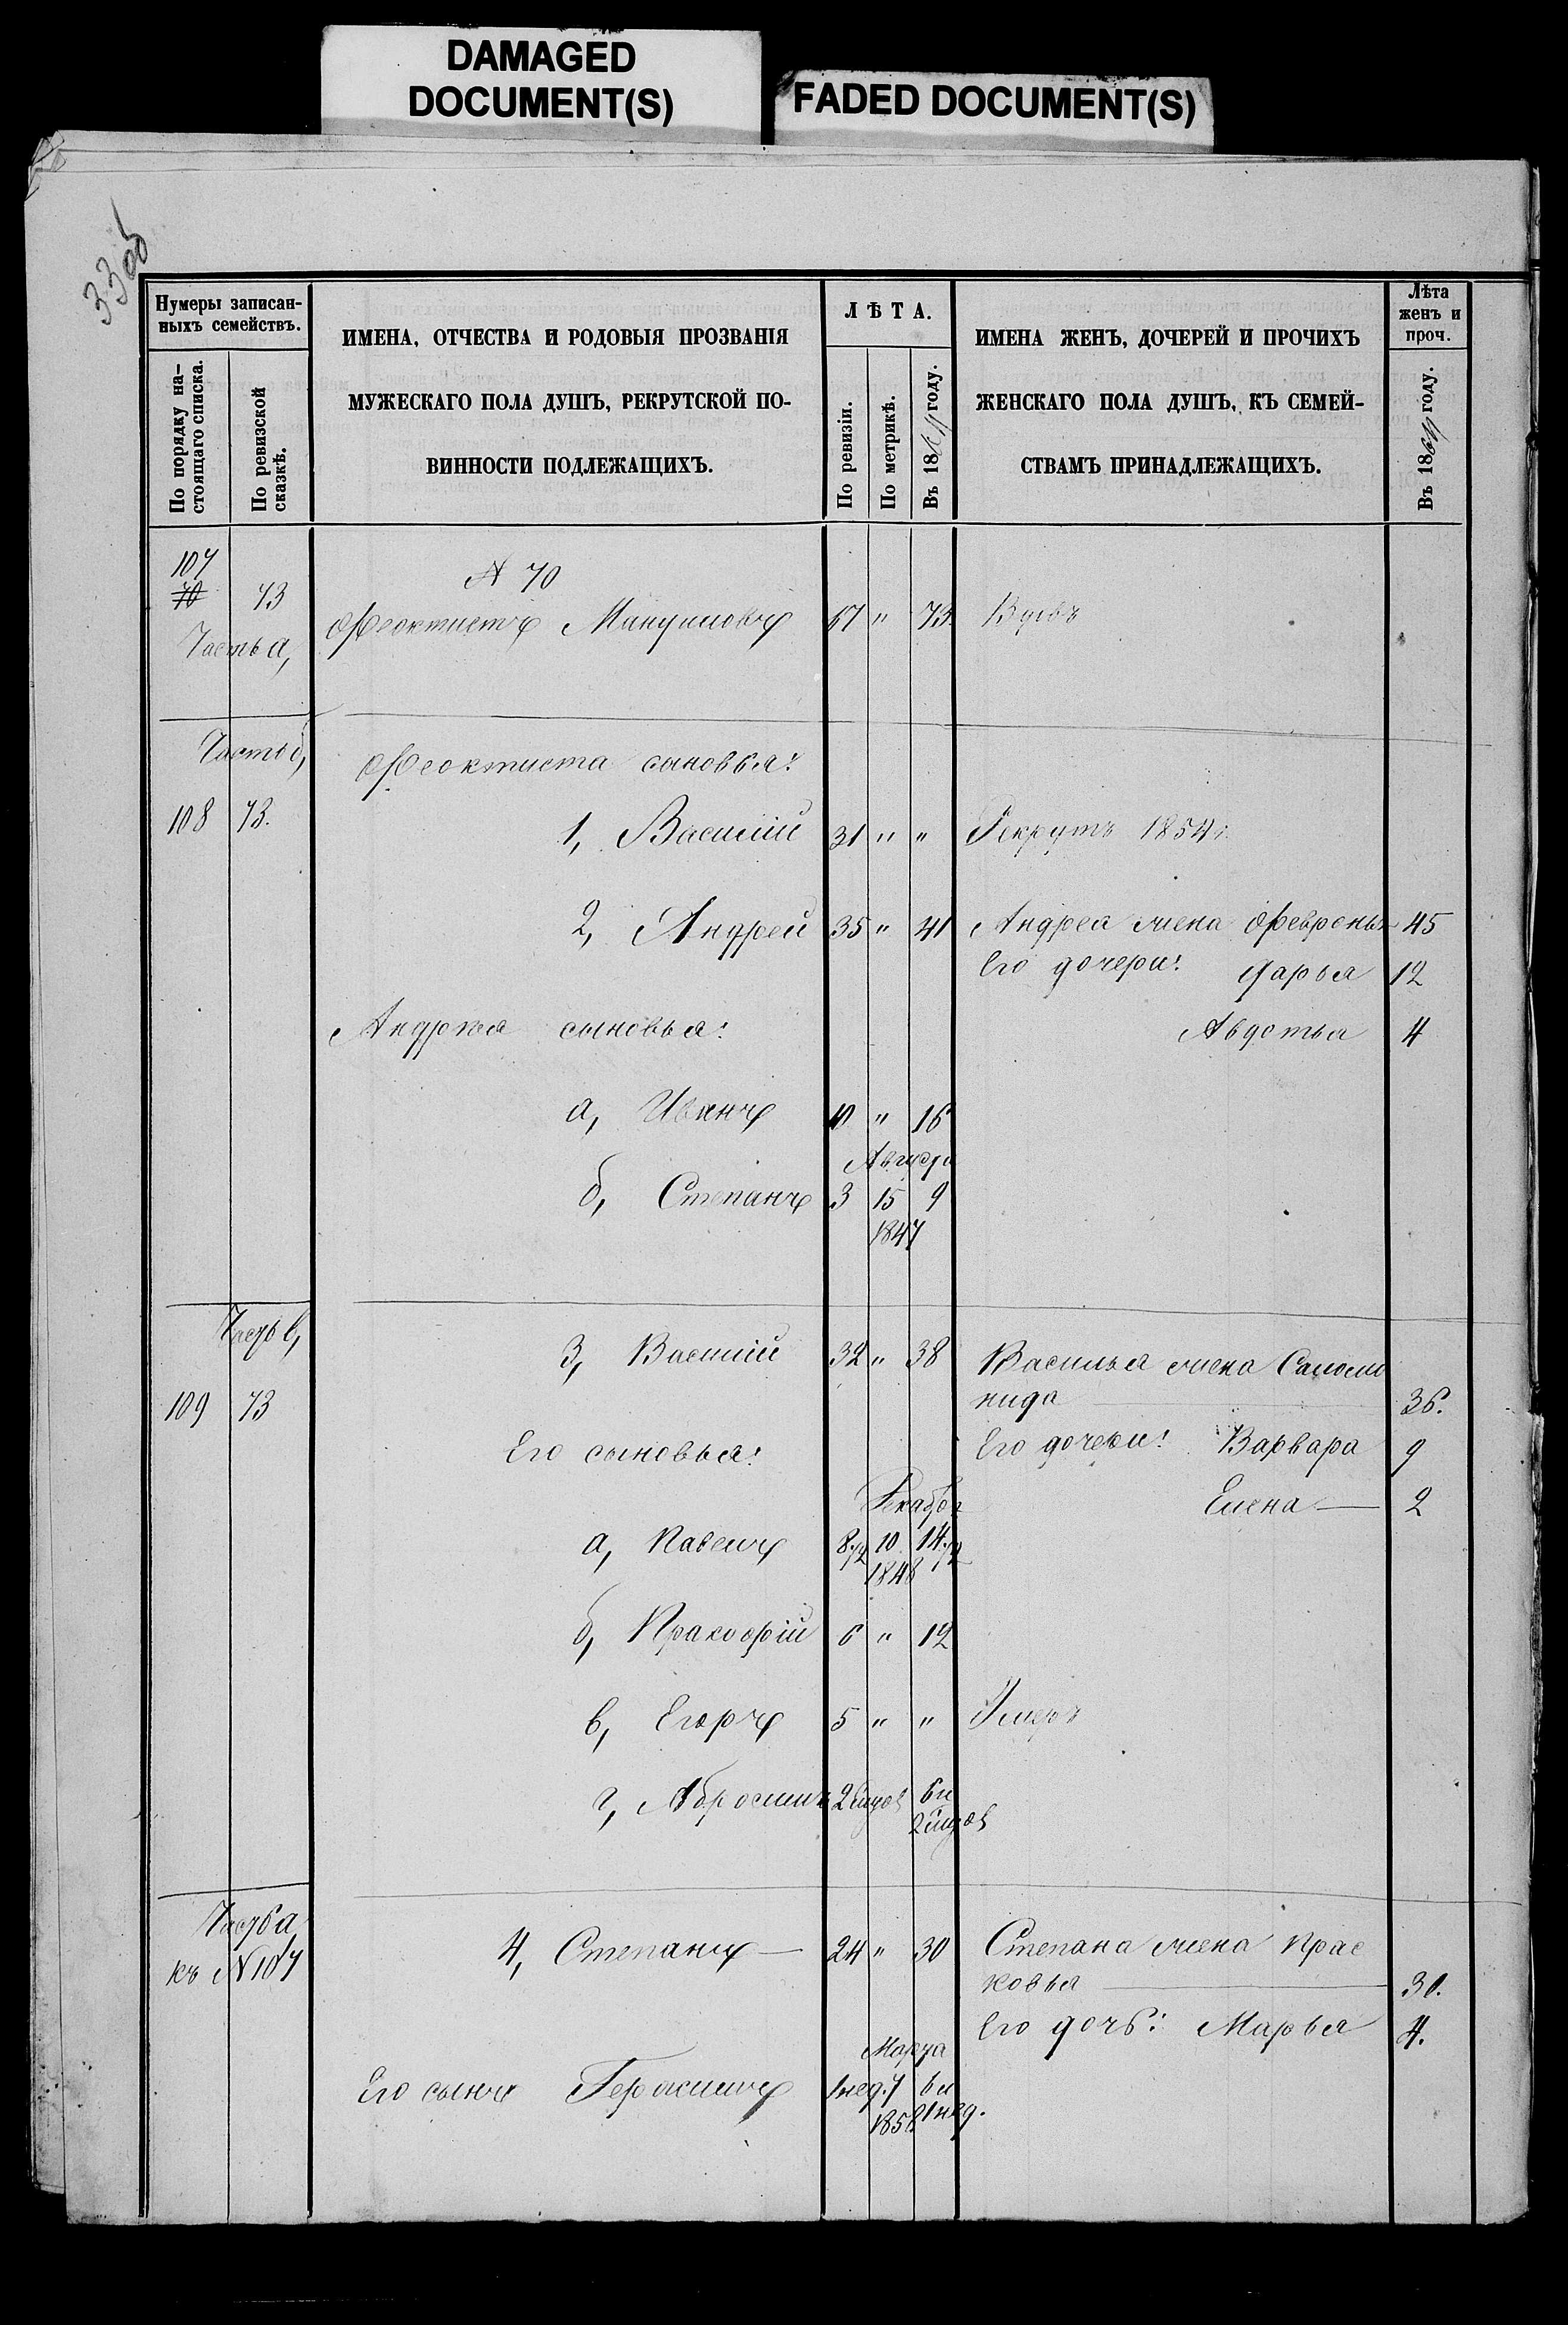 DAMAGED
DOCUMENT(S)
FADED DOCUMENT(S)
33об
Нумеры записан-
ныхъ семействъ.
По порядку на-
стоящаго списка.
По ревизской
сказкѣ.
ИМЕНА, ОТЧЕСТВА И РОДОВЫЯ ПРОЗВАНІЯ
МУЖЕСКАГО ПОЛА ДУШЪ, РЕКРУТСКОЙ ПО-
ВИННОСТИ ПОДЛЕЖАЩИХЪ.
ЛѢТА.
По ревизіи.
По метрикѣ.
Въ 18 году.
ИМЕНА ЖЕНЪ, ДОЧЕРЕЙ И ПРОЧИХЪ
ЖЕНСКАГО ПОЛА ДУШЪ, КЪ СЕМЕЙ-
СТВАМЪ ПРИНАДЛЕЖАЩИХЪ.
Лѣта
женъ и
проч.
Въ 18 году.
107
70 73
Часть а,
№ 70
Феоктистъ 67 " 73. Вдовъ
Часть б,
Феоктиста сыновья:
108 73.
1, Василій 31 " " Рекрутъ 1854 г.
2, Андрей 35 " 41 Андрея жена Февронья 45
Его дочери: Дарья 12
Андрея сыновья: Авдотья 4
а, Иванъ 10 " 16
Августа
б, Степанъ 3 15 9
1847
Часть в,
3, Василій 32 " 38 Василья жена Саломо
109 73 нида 36.
Его сыновья: Его дочери: Варвара 9
Декабря Елена — 2
а, Павелъ 8 1/2 10 14 1/2
1848
б, Пракофій 6 " 12
в, Егоръ 5 " " Умеръ
г, Абросимъ 2 6 и
2
Часть а
къ № 107
4, Степанъ — 24 " 30 Степана жена Прас
ковья 30.
Его дочь: Марья 4.
Марта
Его сынъ Герасимъ 1 нед. 7 6 и
1858 1 нед.